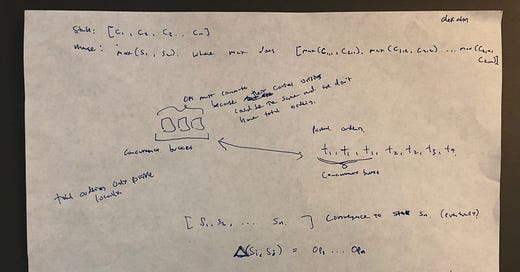 State: [C₁, C₂, C₃ .. Cₙ]
Merge: max(S₁, S₂) where max does [max(C₁,₁, C₂,₁), max(C₁,₂, C₂,₂) ... max(
ops must commute
because causal ordering
could be no sure and we don't
have total ordering.
Concurrence buckets
Partial orders
t₁, t₁, t₁, t₂, t₂, t₃, t₄
Concurrent
total ordering only possible
locally
[ S₁, S₂, .... Sₙ ] Converge to state Sₙ (eventually)
Δ(Sᵢ, Sⱼ) = OP₁ ... OPₙ